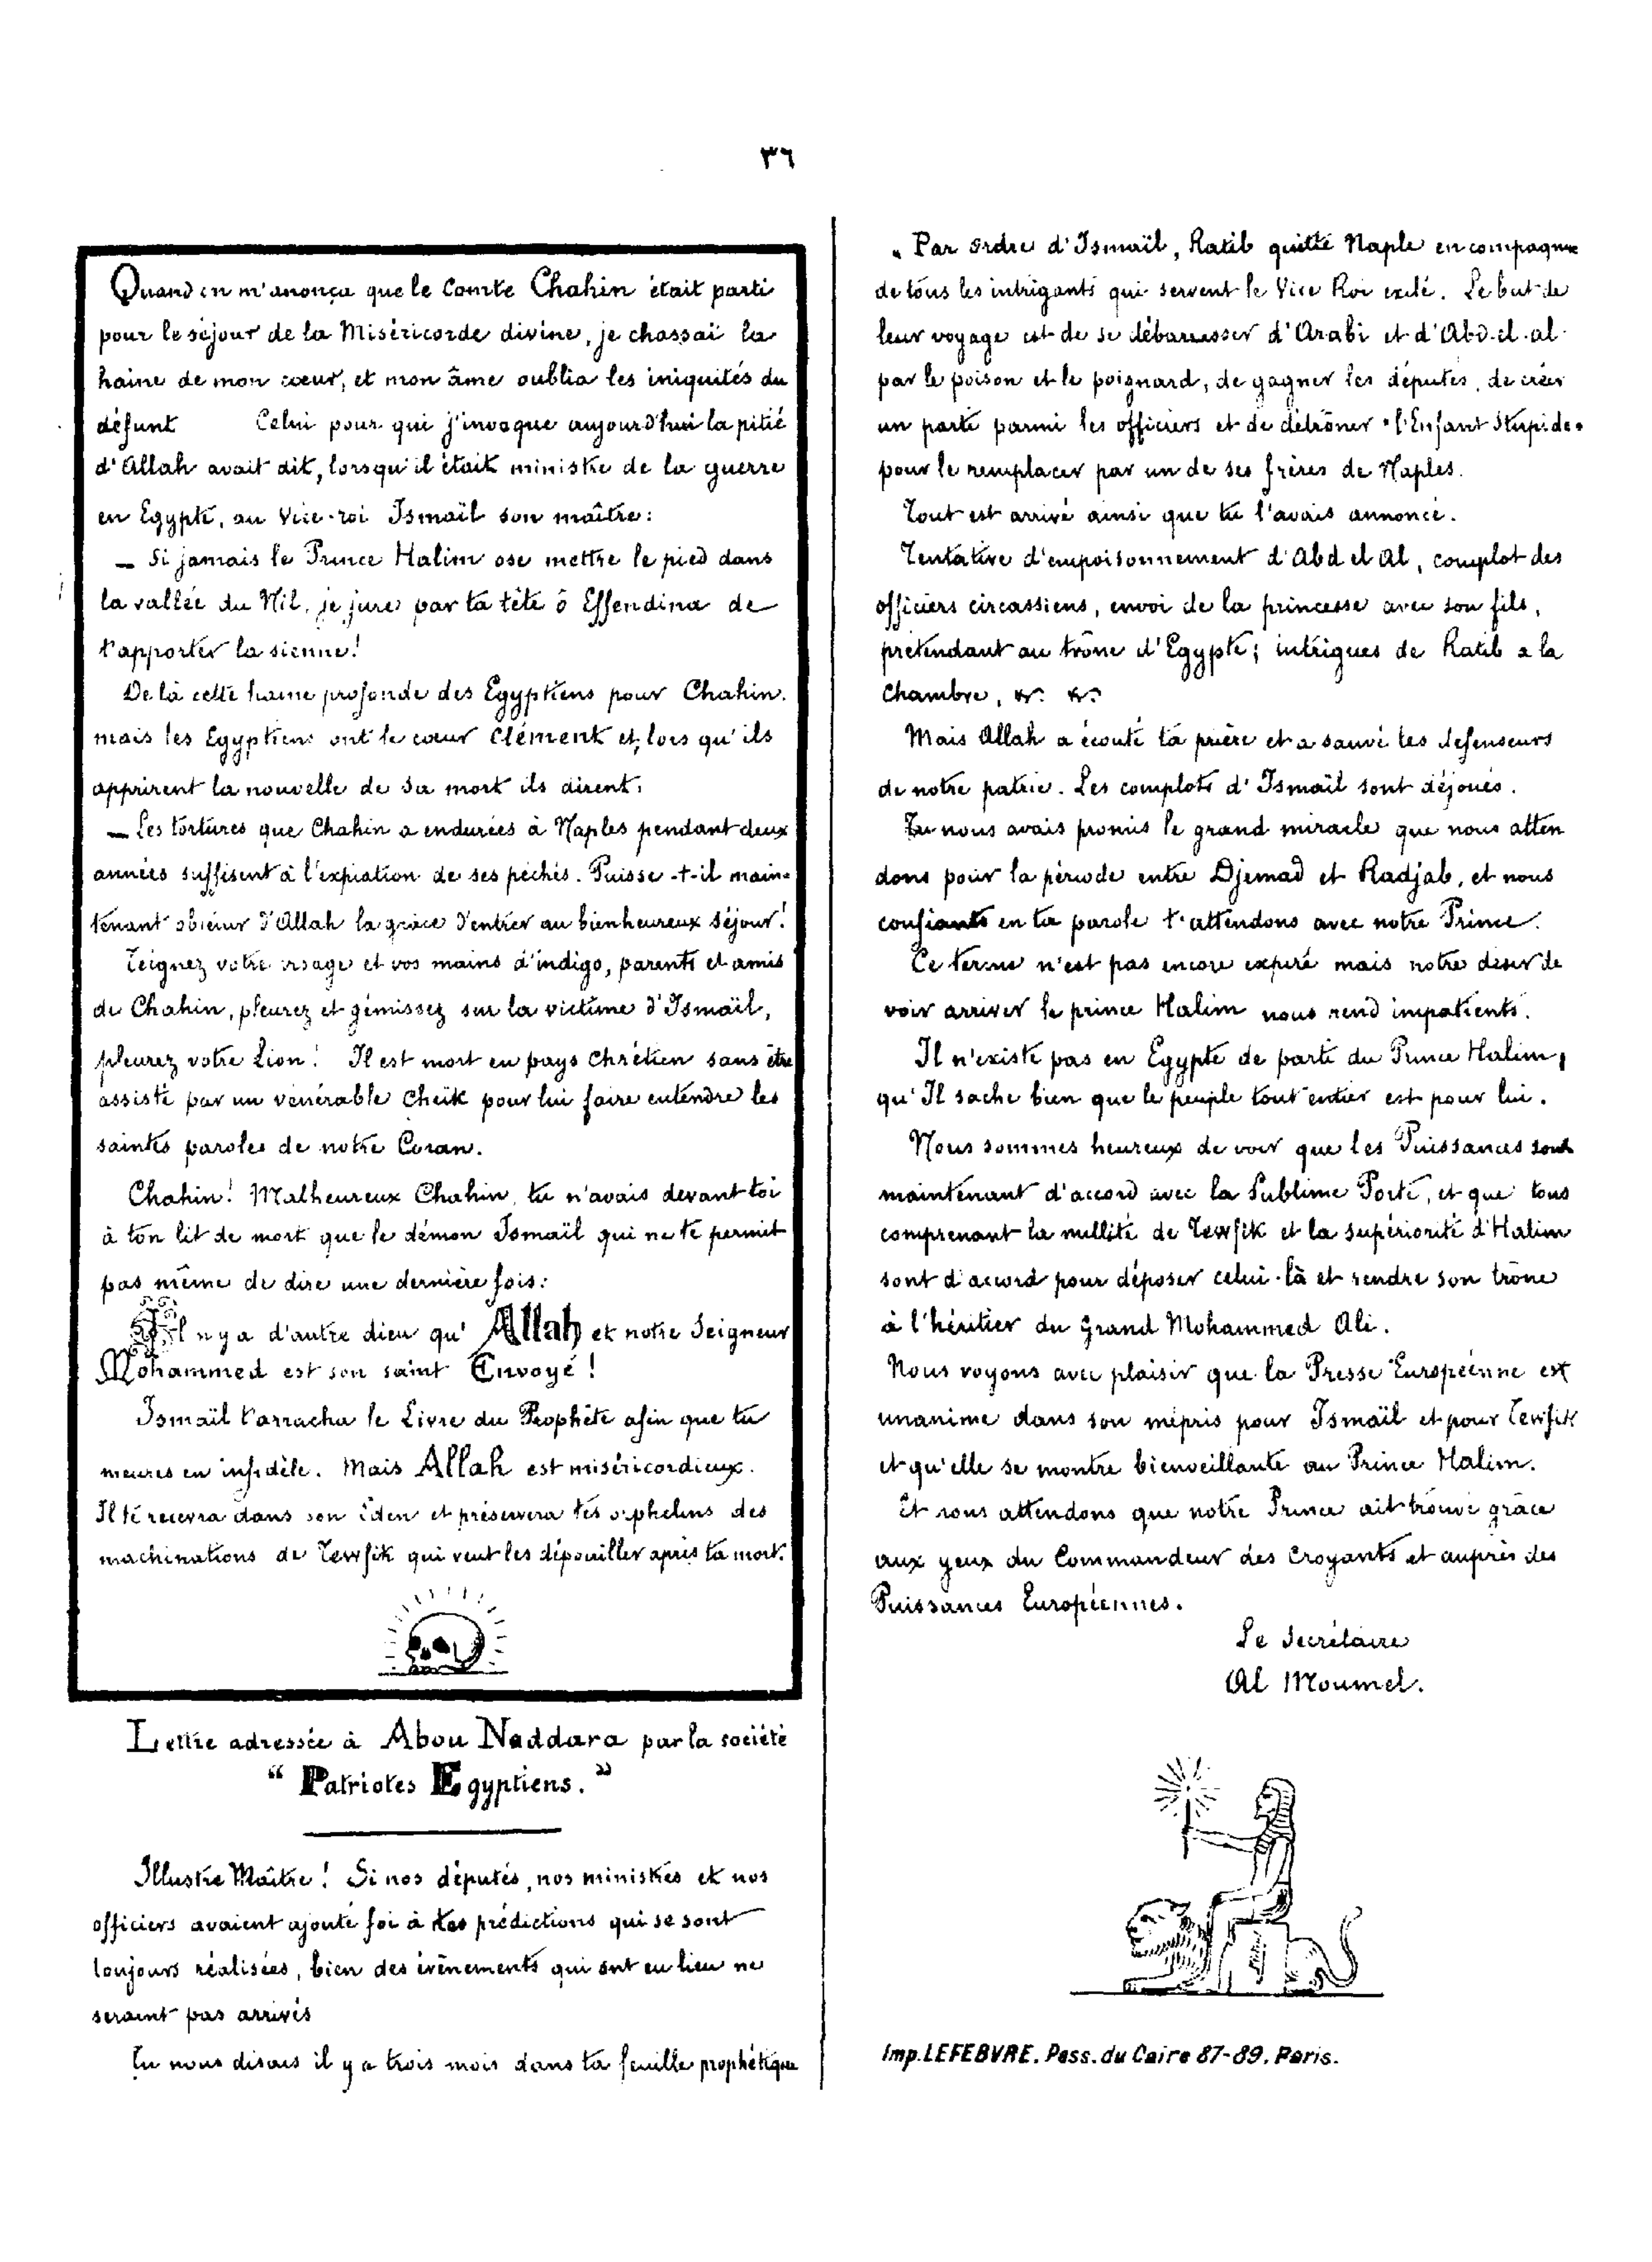 ٣٦
Quand on m'anonça que le Comte Chahin était parti
pour le séjour de la Miséricorde divine, je chassai la
haine de mon cœur, et mon âme oublia les iniquités du
défunt Celui pour qui j'invoque aujourd'hui la pitié
d'Allah avait dit, lorsqu'il était ministre de la guerre
en Egypte, au Vice-roi Ismaïl son maître:
— Si jamais le Prince Halim ose mettre le pied dans
la vallée du Nil, je jure par ta tête ô Effendina de
t'apporter la sienne!
De là cette haine profonde des Egyptiens pour Chahin.
mais les Egyptiens ont le cœur clément et, lors qu'ils
apprirent la nouvelle de sa mort ils dirent:
— Les tortures que Chahin a endurées à Naples pendant deux
années suffisent à l'expiation de ses péchés. Puisse-t-il main-
tenant obtenir d'Allah la grâce d'entrer au bienheureux séjour!
Teignez votre visage et vos mains d'indigo, parents et amis
de Chahin, pleurez et gémissez sur la victime d'Ismaïl,
pleurez votre Lion! Il est mort en pays chrétien sans être
assisté par un vénérable cheik pour lui faire entendre les
saintes paroles de notre Coran.
Chahin! Malheureux Chahin, tu n'avais devant toi
à ton lit de mort que le démon Ismaïl qui ne te permit
pas même de dire une dernière fois:
Il n'y a d'autre dieu qu'Allah et notre Seigneur
Mohammed est son saint Envoyé!
Ismaïl t'arracha le Livre du Prophète afin que tu
meures en infidèle. Mais Allah est miséricordieux.
Il te recevra dans son Eden et préservera tes orphelins des
machinations de Tewfik qui veut les dépouiller après ta mort.
Lettre adressée à Abou Naddara par la société
“ Patriotes Egyptiens. ”
Illustre Maître! Si nos députés, nos ministres et nos
officiers avaient ajouté foi à tes prédictions qui se sont
toujours réalisées, bien des évènements qui ont eu lieu ne
seraint pas arrivés
Tu nous disais il y a trois mois dans ta feuille prophétique
" Par ordre d'Ismaïl, Ratib quitte Naple en compagnie
de tous les intrigants qui servent le Vice Roi exilé. Le but de
leur voyage est de se débarrasser d'Arabi et d'Abd-el-al
par le poison et le poignard, de gagner les députés, de créer
un parti parmi les officiers et de détrôner "l'Enfant Stupide"
pour le remplacer par un de ses frères de Naples.
Tout est arrivé ainsi que tu l'avais annoncé.
Tentative d'empoisonnement d'Abd el Al, complot des
officiers circassiens, envoi de la princesse avec son fils,
prétendant au trône d'Egypte; intrigues de Ratib a la
Chambre, &. &.
Mais Allah a écouté ta prière et a sauvé les défenseurs
de notre patrie. Les complots d'Ismaïl sont déjoués.
Tu nous avais promis le grand miracle que nous atten
dons pour la période entre Djemad et Radjab, et nous
confiants en ta parole t'attendons avec notre Prince.
Ce terme n'est pas encore expiré mais notre désir de
voir arriver le prince Halim nous rend impatients.
Il n'existe pas en Egypte de parti du Prince Halim,
qu'Il sache bien que le peuple tout entier est pour lui.
Nous sommes heureux de voir que les Puissances sont
maintenant d'accord avec la Sublime Porte, et que tous
comprenant la nullité de Tewfik et la supériorité d'Halim
sont d'accord pour déposer celui-là et rendre son trône
à l'héritier du Grand Mohammed Ali.
Nous voyons avec plaisir que la Presse Européenne est
unanime dans son mépris pour Ismaïl et pour Tewfik
et qu'elle se montre bienveillante au Prince Halim.
Et nous attendons que notre Prince ait trouvé grâce
aux yeux du Commandeur des Croyants et auprès des
Puissances Européennes.
Le Secrétaire
Al Moumel.
Imp. LEFEBVRE. Pass. du Caire 87-89. Paris.